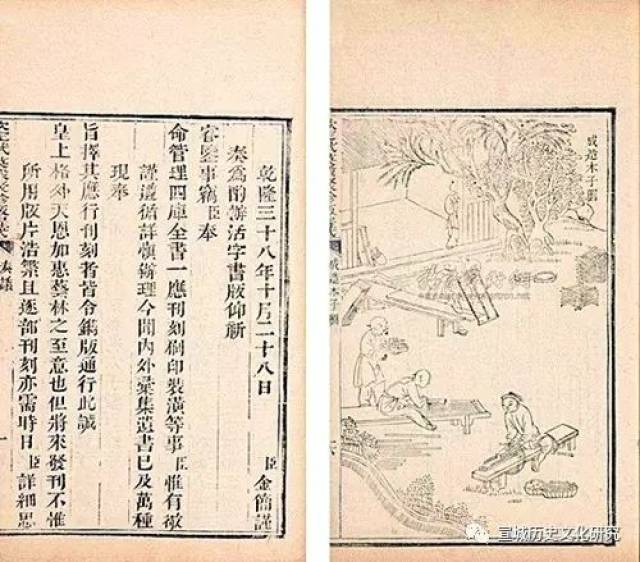 成造木子圖
乾隆三十八年十月二十八日 臣金簡謹
奏爲酌辦活字書版仰祈
睿鑒事竊臣奉
命管理四庫全書一應刊刻刷印裝潢等事臣惟有敬
謹遵循詳慎辦理今聞內外彙集遺書已及萬種
現奉
旨擇其應行刊刻者皆令鐫版通行此誠
皇上格外天恩加惠藝林之至意也但將來發刊不惟
所用版片浩繁且逐部刊刻亦需時日臣詳細思
奏議
一
宣城历史文化研究